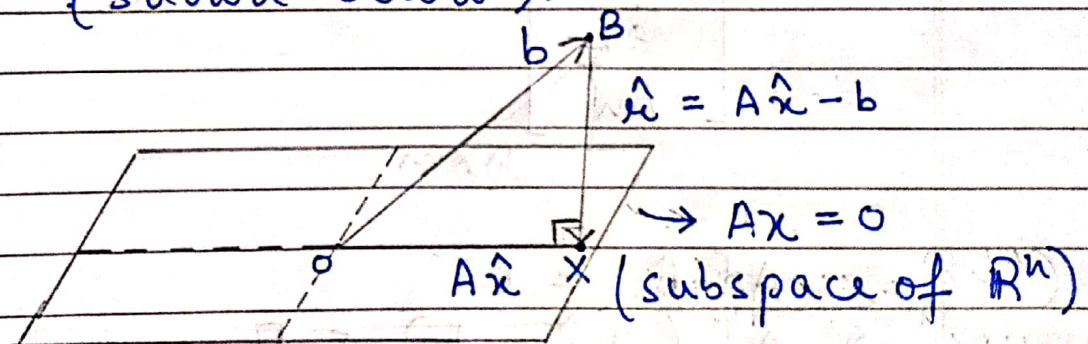 B
b
r̂ = Ax̂ - b
→ Ax = 0
O
Ax̂
X
(subspace of Rⁿ)